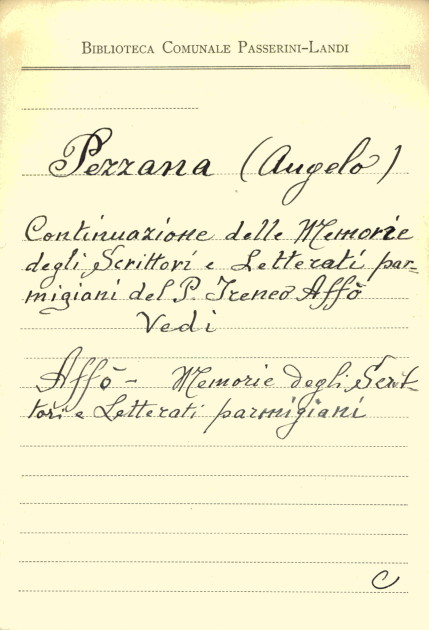 BIBLIOTECA COMUNALE PASSERINI-LANDI
Pezzana (Angelo)
Continuazione delle Memorie
degli Scrittori e Letterati par-
migiani del P. Ireneo Affò
Vedi
Affò - Memorie degli Scrit-
tori e Letterati parmigiani
C